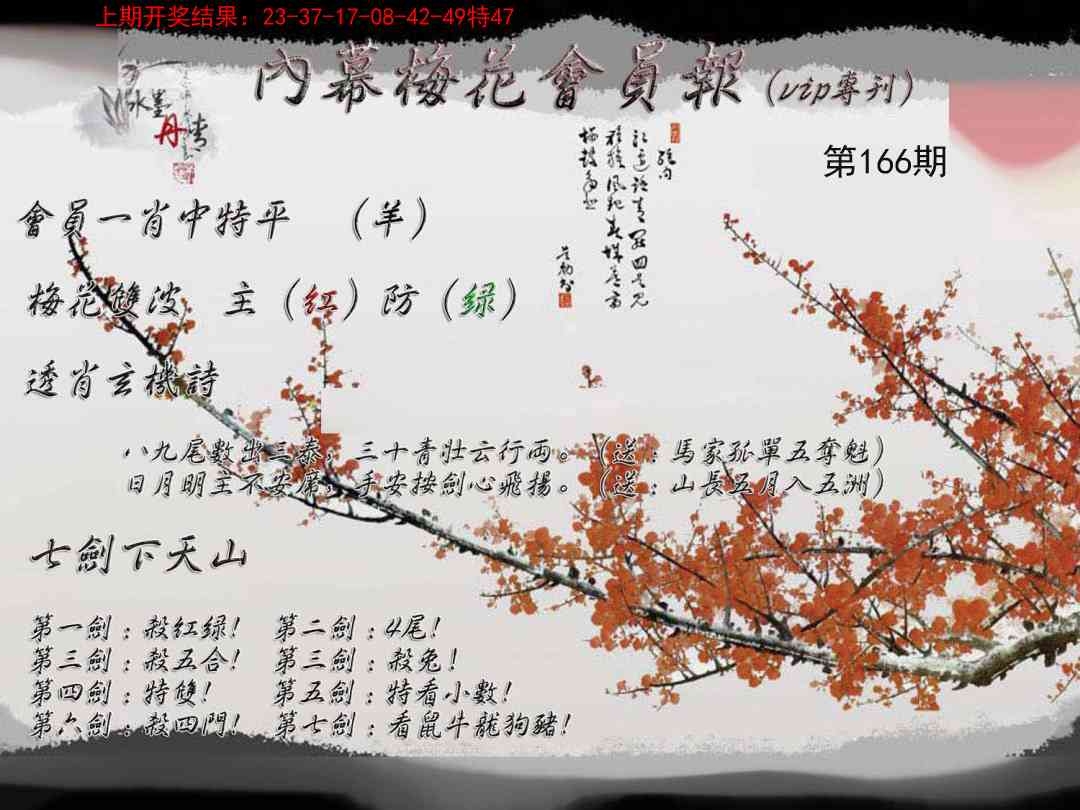 上期开奖结果：23-37-17-08-42-49特47
內幕梅花會員報（vip專刊）
水墨
丹情
第166期
會員一肖中特平 （羊）
梅花雙波 主（红）防（绿）
透肖玄機詩
八九尾數出三泰，三十青壯云行両。（送：馬家孤單五奪魁）
日月明主不安席，手安按劍心飛揚。（送：山長五月入五洲）
七劍下天山
第一劍：殺红绿！ 第二劍：4尾！
第三劍：殺五合！ 第三劍：殺兔！
第四劍：特雙！ 第五劍：特看小數！
第六劍：殺四門！ 第七劍：看鼠牛龍狗豬！